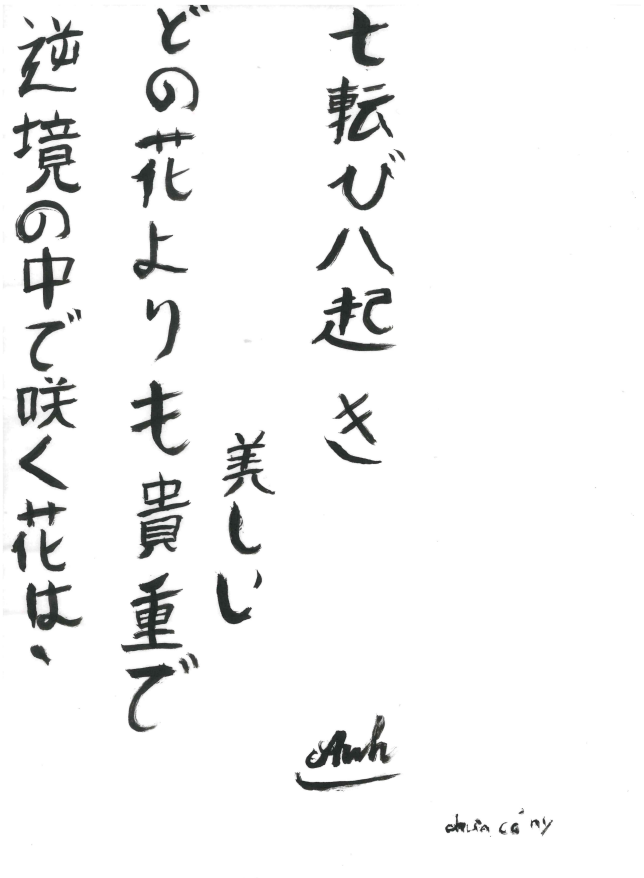 逆境の中で咲く花は、
どの花よりも貴重で
美しい
七転び八起き
Anh
chưa có ny